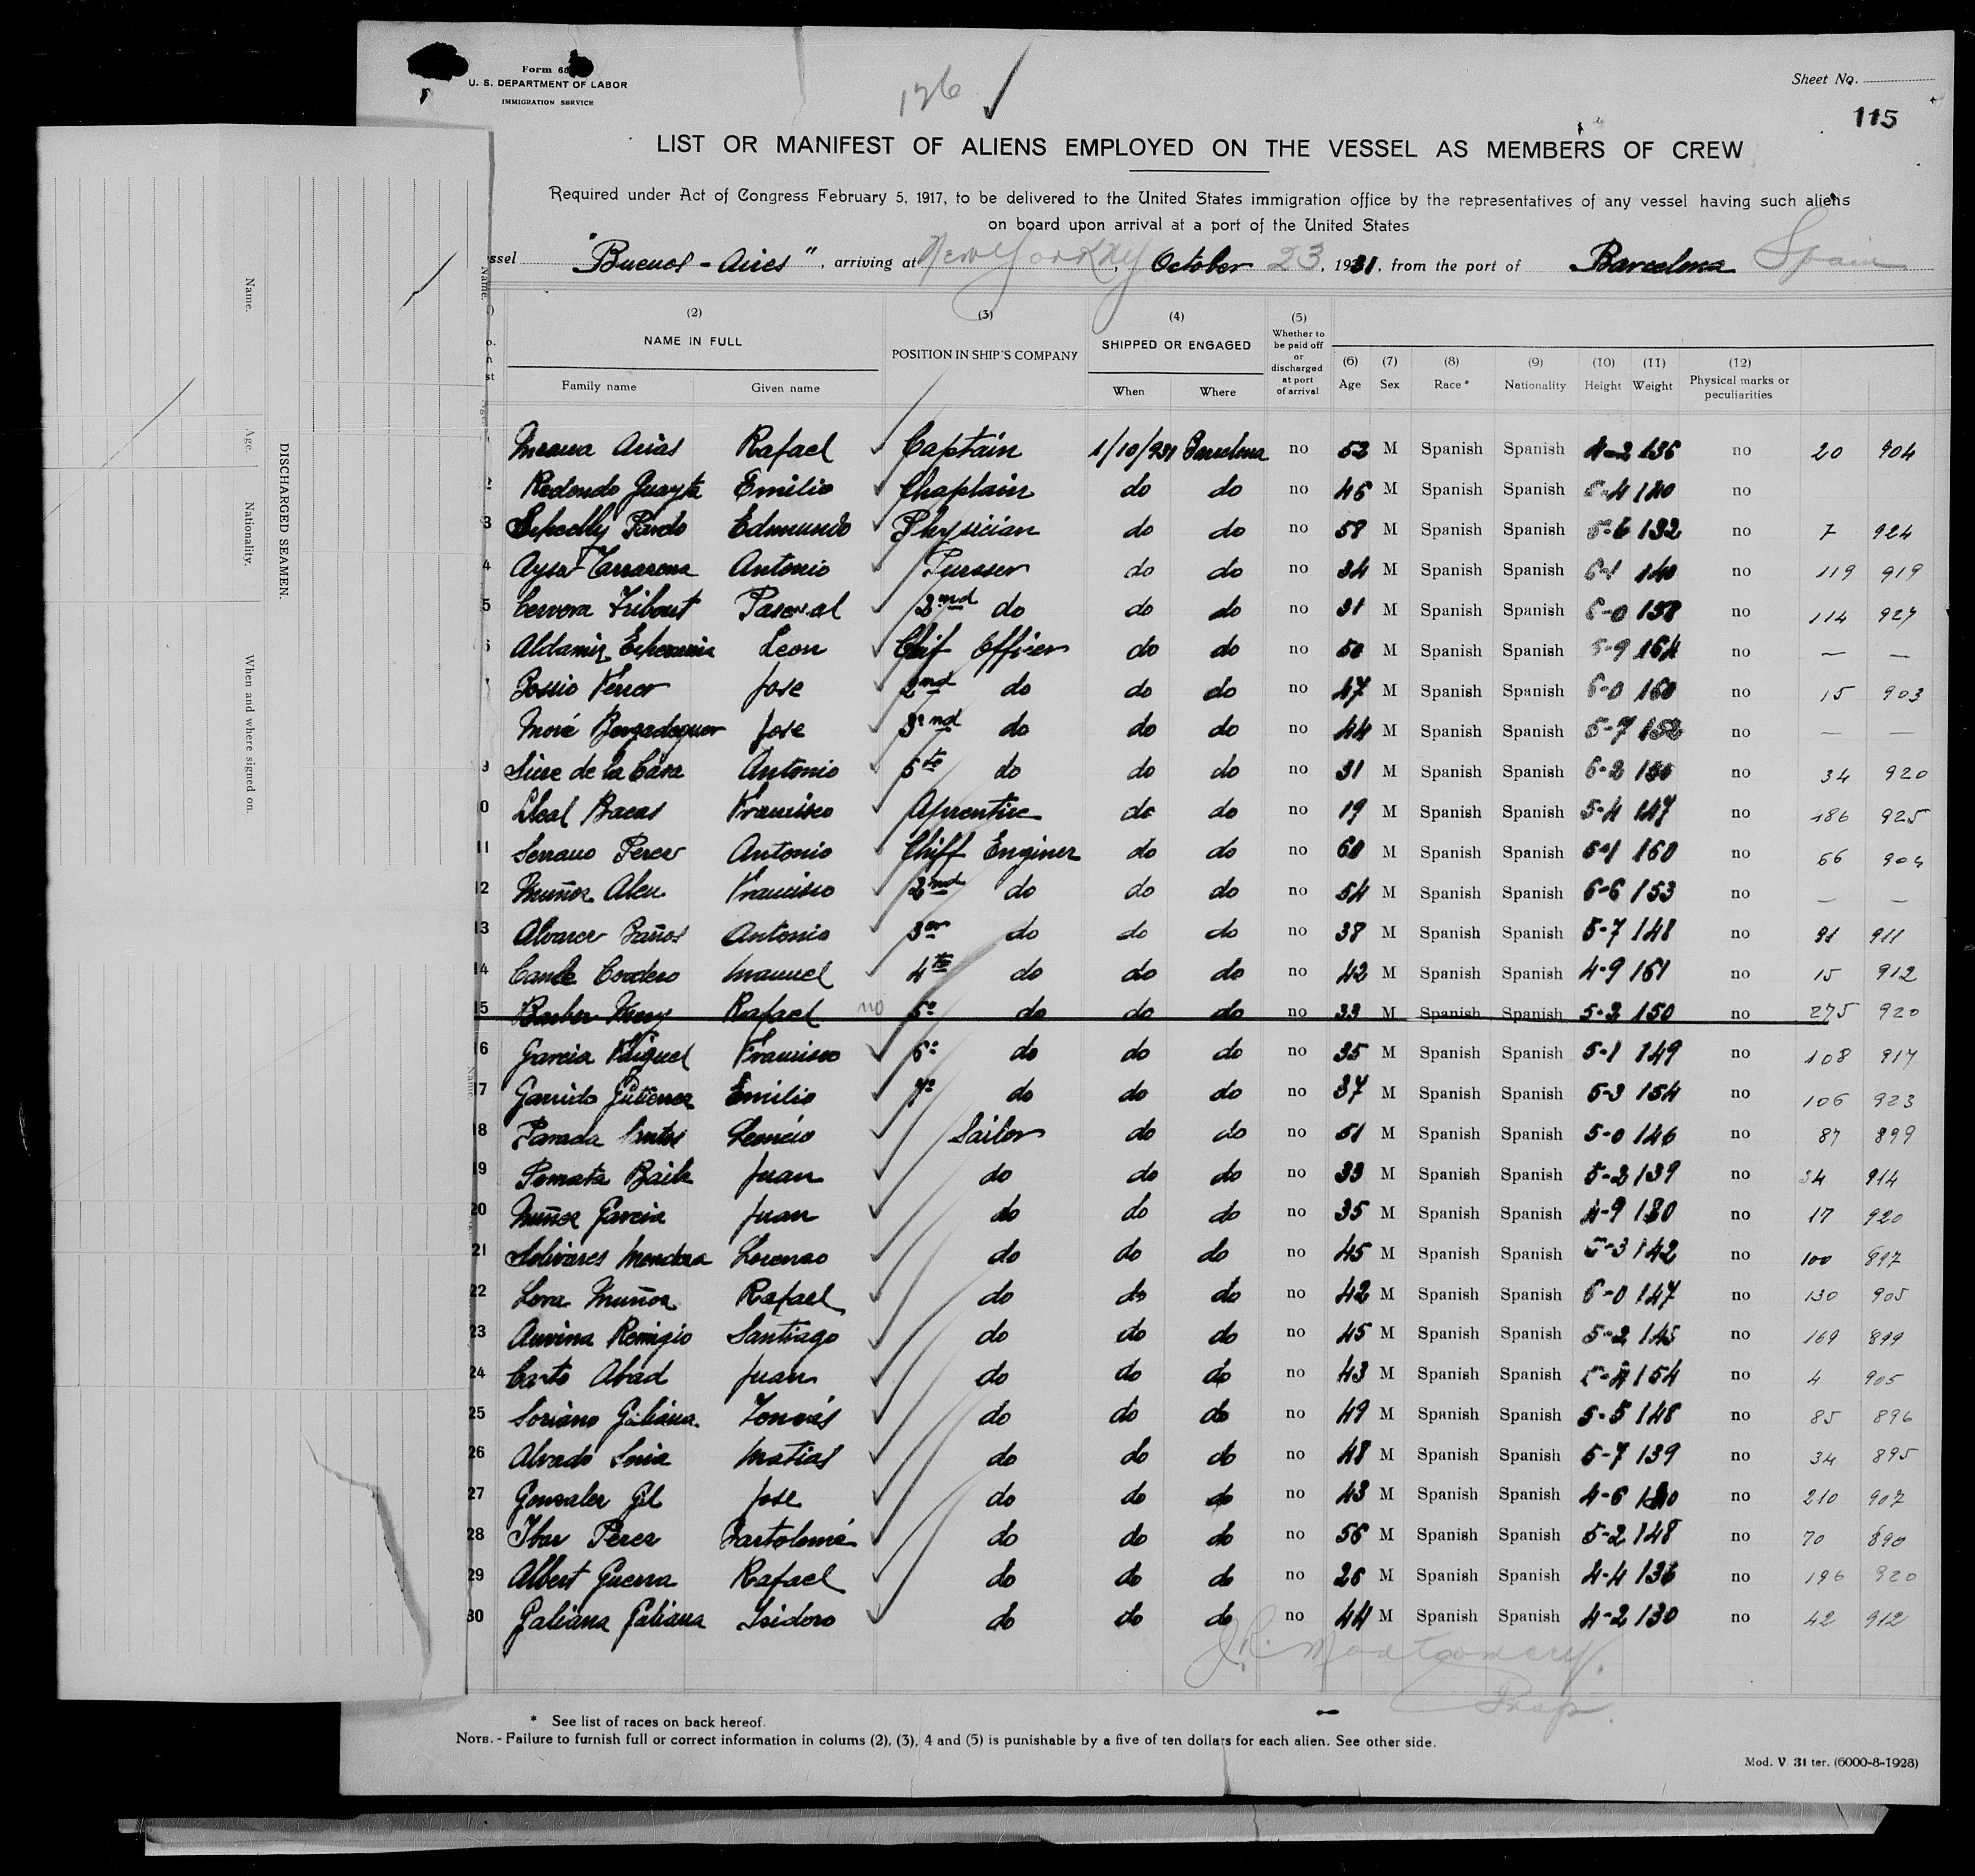 Form 68
U. S. DEPARTMENT OF LABOR
IMMIGRATION SERVICE
126
Sheet No.
115
LIST OR MANIFEST OF ALIENS EMPLOYED ON THE VESSEL AS MEMBERS OF CREW
Required under Act of Congress February 5, 1917, to be delivered to the United States immigration office by the representatives of any vessel having such aliens
on board upon arrival at a port of the United States
ssel "Buenos-Aires", arriving at New York NY, October 23, 1931, from the port of Barcelona Spain
(2) NAME IN FULL Family name Given name
(3) POSITION IN SHIP'S COMPANY
(4) SHIPPED OR ENGAGED When Where
(5) Whether to be paid off or discharged at port of arrival
(6) Age (7) Sex (8) Race * (9) Nationality (10) Height (11) Weight (12) Physical marks or peculiarities
Arias Rafael Captain 1/10/931 Barcelona no 52 M Spanish Spanish 136 no 20 904
2 Redondo Emilio Chaplain do do no 46 M Spanish Spanish no
3 Pardo Edmundo Physician do do no 58 M Spanish Spanish 5-6 132 no 7 924
4 Antonio Pursser do do no 34 M Spanish Spanish 140 no 119 919
5 Cervera Pascual 2nd do do do no 31 M Spanish Spanish 138 no 114 927
6 Aldamiz Leon Chif Officer do do no 50 M Spanish Spanish 5-9 164 no — —
Ferrer Jose 2nd do do do no 47 M Spanish Spanish 160 no 15 903
Moré Jose 3nd do do do no 44 M Spanish Spanish 5-7 152 no — —
9 de la Casa Antonio 5to do do do no 31 M Spanish Spanish no 34 920
0 Lleal Bacas Francisco Aprentice do do no 19 M Spanish Spanish 5-4 147 no 186 925
11 Serrano Perez Antonio Chiff Enginer do do no 60 M Spanish Spanish 5-1 160 no 66 904
12 Muñoz Francisco 2nd do do do no 54 M Spanish Spanish 6-6 153 no — —
13 Alvarez Baños Antonio 3er do do do no 38 M Spanish Spanish 5-7 148 no 91 911
14 Manuel 4to do do do no 42 M Spanish Spanish 4-9 161 no 15 912
15 Barber Rafael no 5º do do do no 33 M Spanish Spanish 5-3 150 no 275 920
16 Garcia Miguel Francisco 6º do do do no 35 M Spanish Spanish 5-1 149 no 108 917
17 Garrido Gutierrez Emilio 7º do do do no 37 M Spanish Spanish 5-3 154 no 106 923
18 Parada Santos Leoncio Sailor do do no 51 M Spanish Spanish 5-0 146 no 87 899
19 Juan do do do no 33 M Spanish Spanish 5-2 139 no 34 914
20 Muñoz Garcia Juan do do do no 35 M Spanish Spanish 4-9 130 no 17 920
21 Solivares Mendoza Lorenzo do do do no 45 M Spanish Spanish 142 no 100 897
22 Lova Muñoz Rafael do do do no 42 M Spanish Spanish 147 no 130 905
23 Remigio Santiago do do do no 45 M Spanish Spanish 5-2 145 no 169 899
24 Abad Juan do do do no 43 M Spanish Spanish 154 no 4 905
25 Soriano Galiana Tomás do do do no 49 M Spanish Spanish 5-5 148 no 85 896
26 Alvado Matias do do do no 48 M Spanish Spanish 5-7 139 no 34 895
27 Gonzalez Gil Jose do do do no 43 M Spanish Spanish 4-6 no 210 907
28 Perez Bartolomé do do do no 56 M Spanish Spanish 5-2 148 no 70 890
29 Albert Guerra Rafael do do do no 26 M Spanish Spanish 4-4 136 no 196 920
30 Galiana Galiana Isidoro do do do no 44 M Spanish Spanish 4-2 130 no 42 912
J.R. Montgomery.
Insp.
* See list of races on back hereof.
NOTE. - Failure to furnish full or correct information in colums (2), (3), 4 and (5) is punishable by a five of ten dollars for each alien. See other side.
Mod. V 31 ter. (6000-8-1928)
DISCHARGED SEAMEN.
Name. Age. Nationality. When and where signed on.